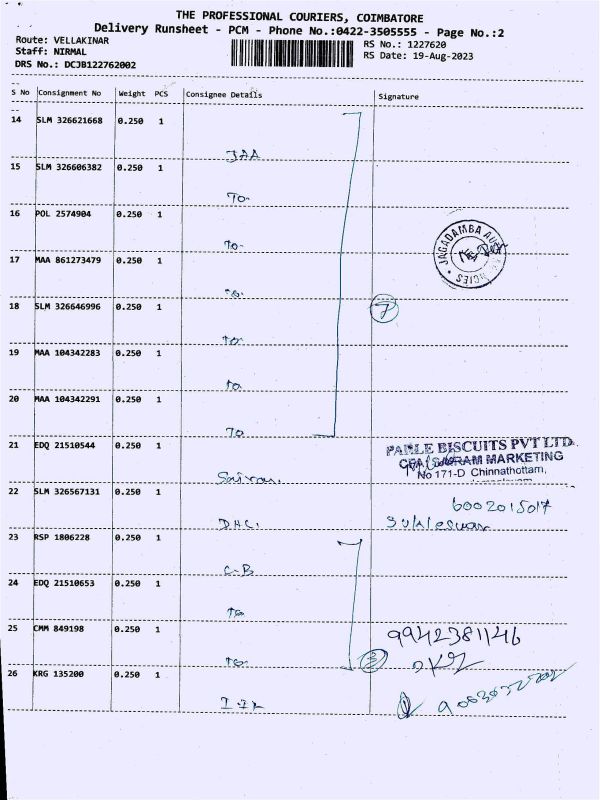 THE PROFESSIONAL COURIERS, COIMBATORE
Delivery Runsheet - PCM - Phone No.:0422-3505555 - Page No.:2
Route: VELLAKINAR
RS No.: 1227620
Staff: NIRMAL
RS Date: 19-Aug-2023
DRS No.: DCJB122762002
S No Consignment No Weight PCS Consignee Details Signature
14 SLM 326621668 0.250 1
JAA
15 SLM 326606382 0.250 1
To
16 POL 2574904 0.250 1
To
JAGADAMBA
17 MAA 861273479 0.250 1
To
18 SLM 326646996 0.250 1
7
To
19 MAA 104342283 0.250 1
To
20 MAA 104342291 0.250 1
To
21 EDQ 21510544 0.250 1
PARLE BISCUITS PVT LTD.
MARKETING
No 171-D Chinnathottam,
22 SLM 326567131 0.250 1
6002015017
DHC.
23 RSP 1806228 0.250 1
C-B
24 EDQ 21510653 0.250 1
To
25 CMM 849198 0.250 1
9942381146
To
3
26 KRG 135200 0.250 1